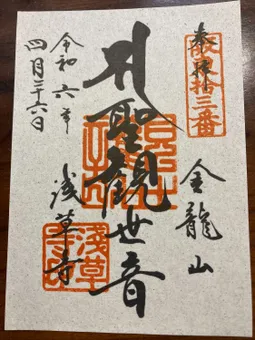 奉拝
坂東拾三番
金龍山
聖観世音
浅草寺
令和六年
四月二十六日